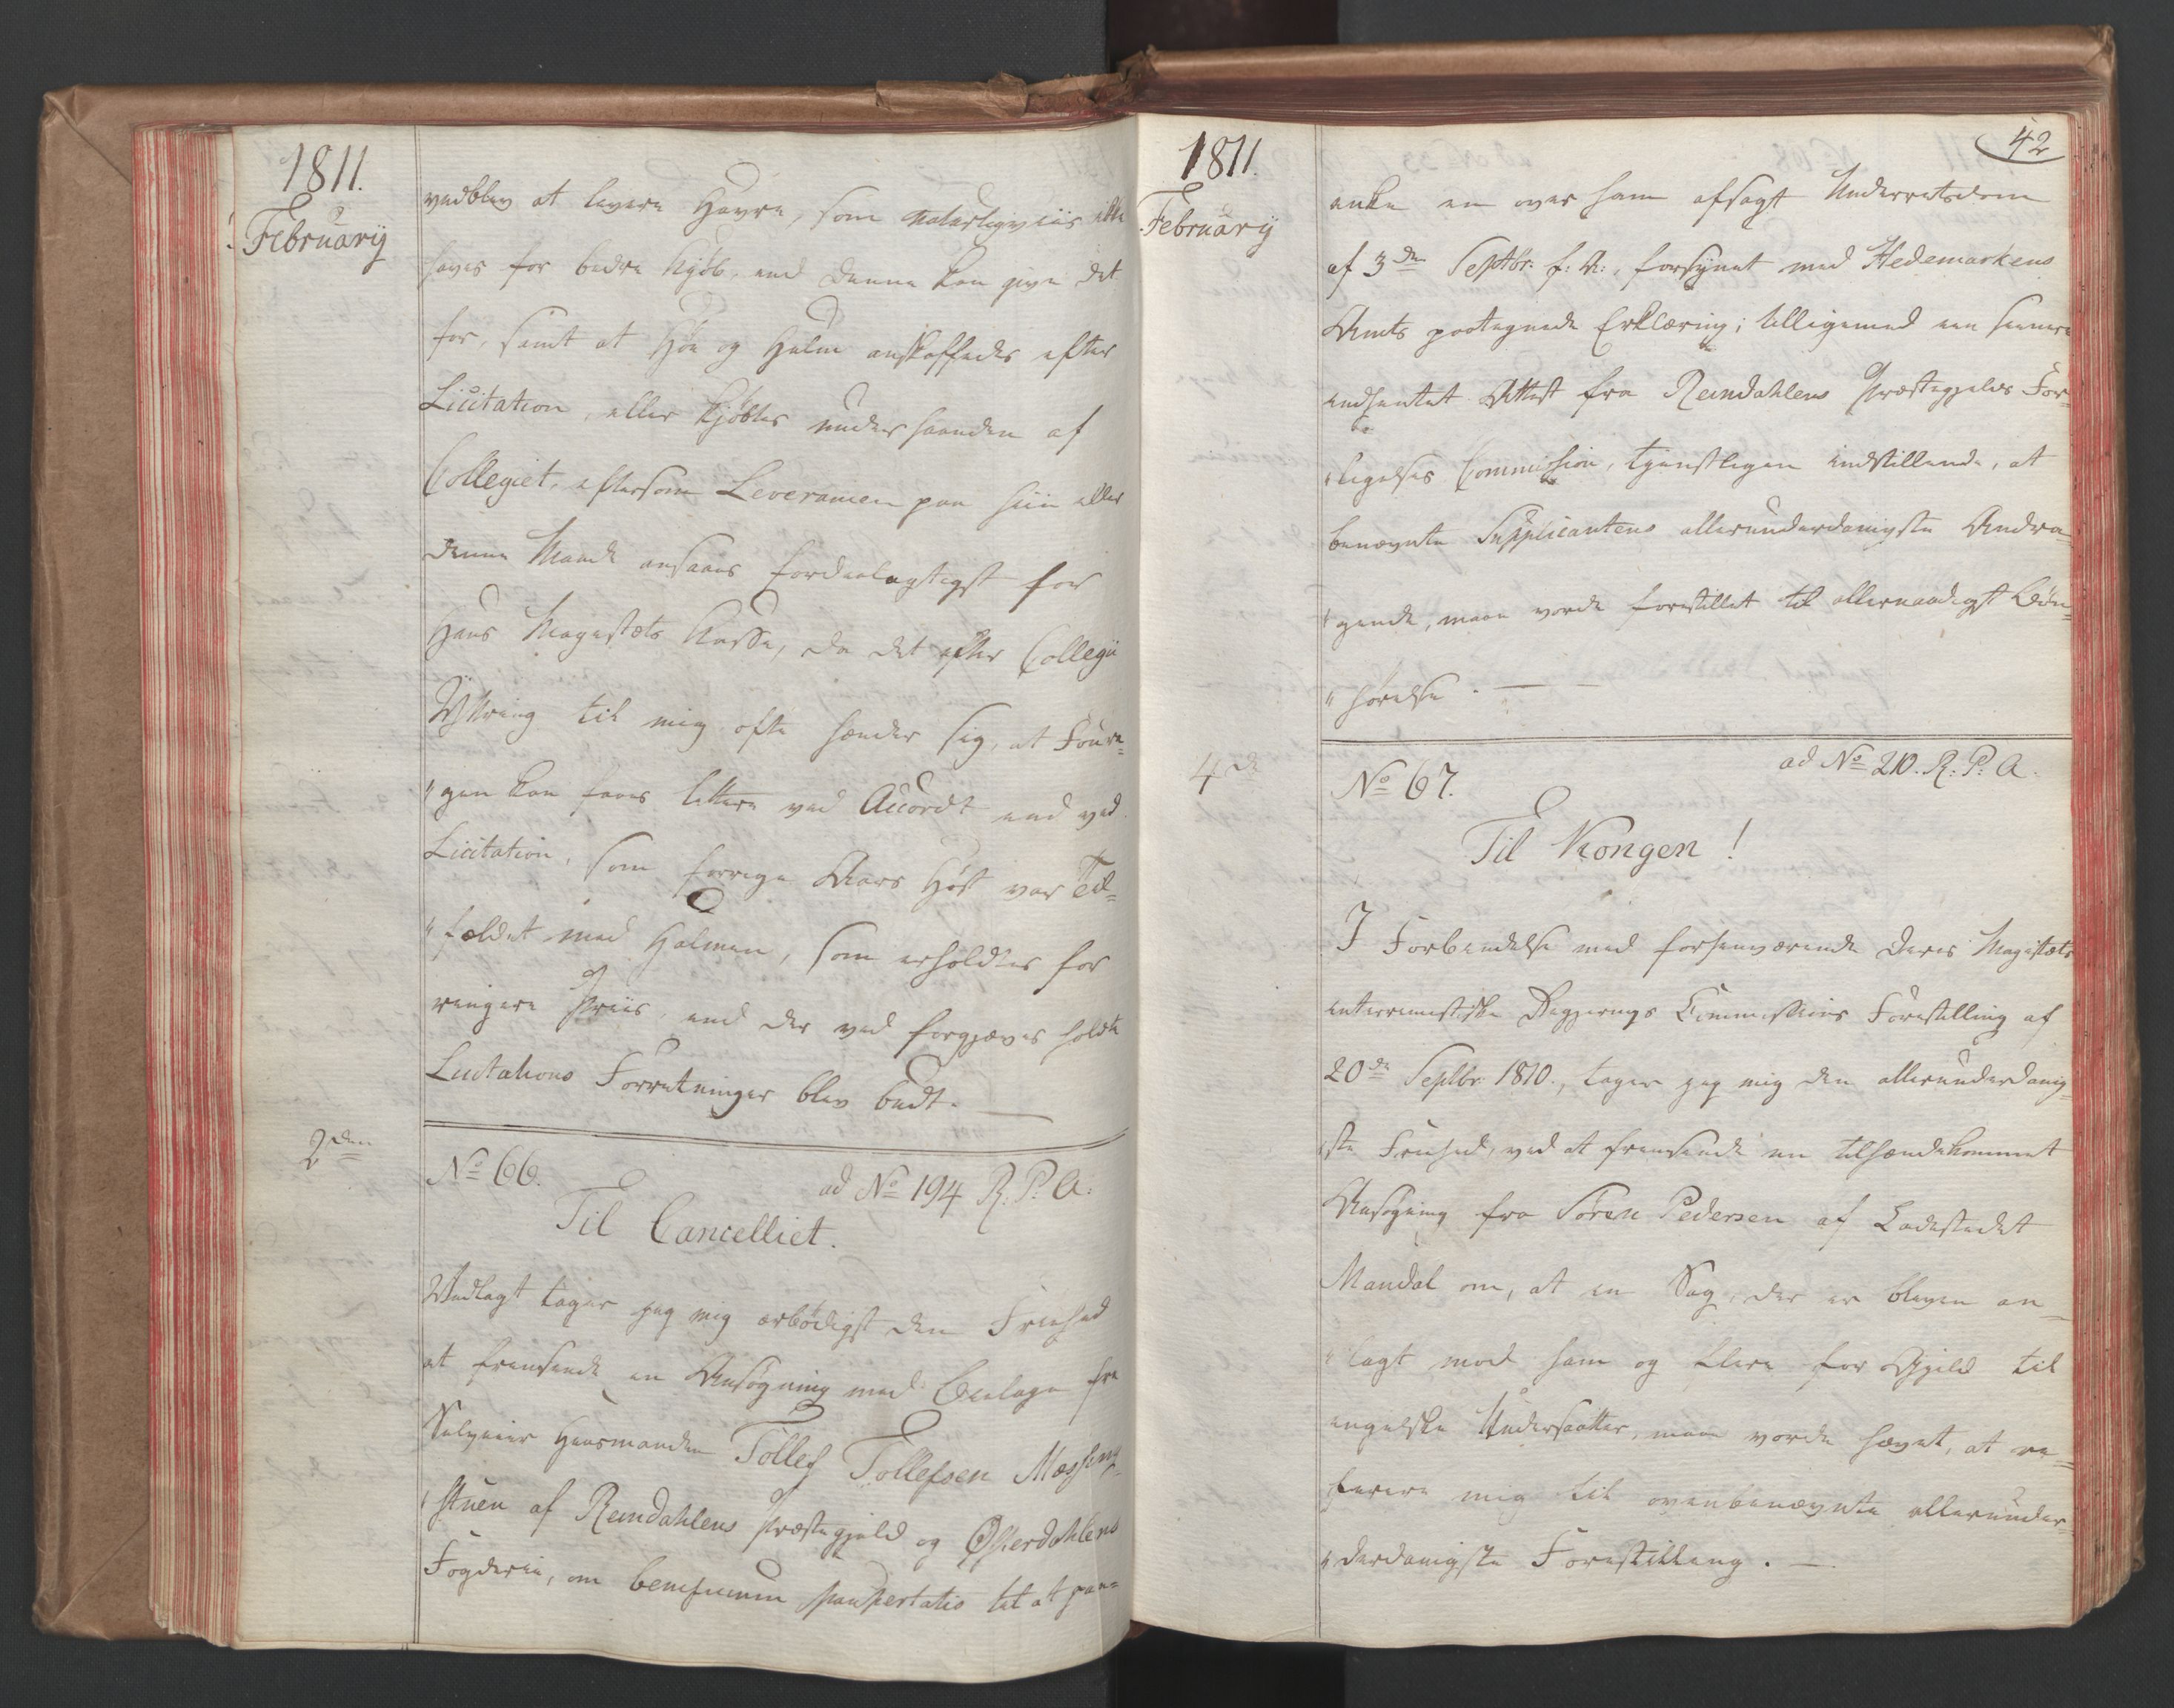 1811.
Februarij
vedblev at levere Havre, som naturligviis ikke
haves for bedre Kjøb, end denne kan give det
for, samt at Høe og Halm anskaffedes efter
Licitation, eller kjøbtes underhaanden af
Collegiet, eftersom Leverancen paa hiin eller
denne Maade ansaaes fordeelagtigst for
Hans Majestæts Kasse, da det efter Collegii
Yttring til mig ofte hænder sig, at Foura=
"gen kan faaes lettere ved Accordt end ved
Licitation, som forrige Aars Høst var Til=
"fældet med Halmen, som erholdtes for
ringere Priis, end der ved forgjæves holdte
Licitations Forretninger blev budt. —
2den
No 66.
ad No 194 R: P: A:
Til Cancelliet.
Vedlagt tager jeg mig ærbødigst den Friehed
at fremsende en Ansøgning med Bielage fra
Selveier Huusmanden Tollef Tollefsen Messeng=
"stuen af Reindahlens Præstegjeld og Østerdahlens
Fogderie, om beneficium paupertatis til at paa=
1811.
Februarij
42
anke en over ham afsagt Underretsdom
af 3die Septbr. f: A:, forsynet med Hedemarkens
Amts paategnede Erklæring; tilligemed een senere
indhentet Attest fra Reindahlens Præstegjelds For=
"ligelses Commission, tjenstligen indstillende, at
benævnte Supplicantens allerunderdanigste Andra=
"gende, maae vorde forestillet til allernaadigst Bøn=
"hørelse. — —
4de
No 67.
ad No 210. R: P: A.
Til Kongen!
I Forbindelse med forhenværende Deres Majestæts
interimistiske Regjerings Commissions Forestilling af
20de Septbr. 1810., tager jeg mig den allerunderdanig=
"ste Friehed, ved at fremsende en tilhændekommet
Ansøgning fra Sören Pedersen af Ladestedet
Mandal om, at en Sag, der er bleven an=
"lagt mod ham og flere for Gjeld til
engelske Undersaatter, maae vorde hævet, at re=
"ferere mig til ovenbenævnte allerunder=
"derdanigste Forestilling. —